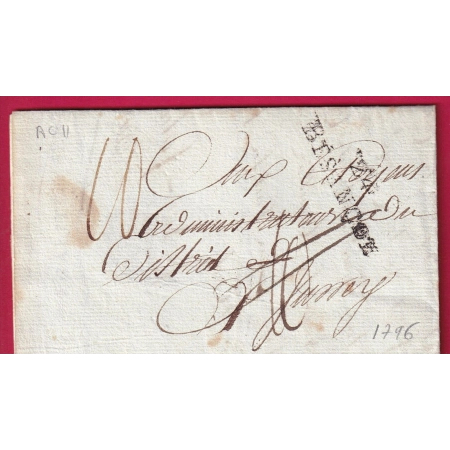 AC 11
24
BESANÇON
Aux Citoyens
Administrateurs du
District
1796